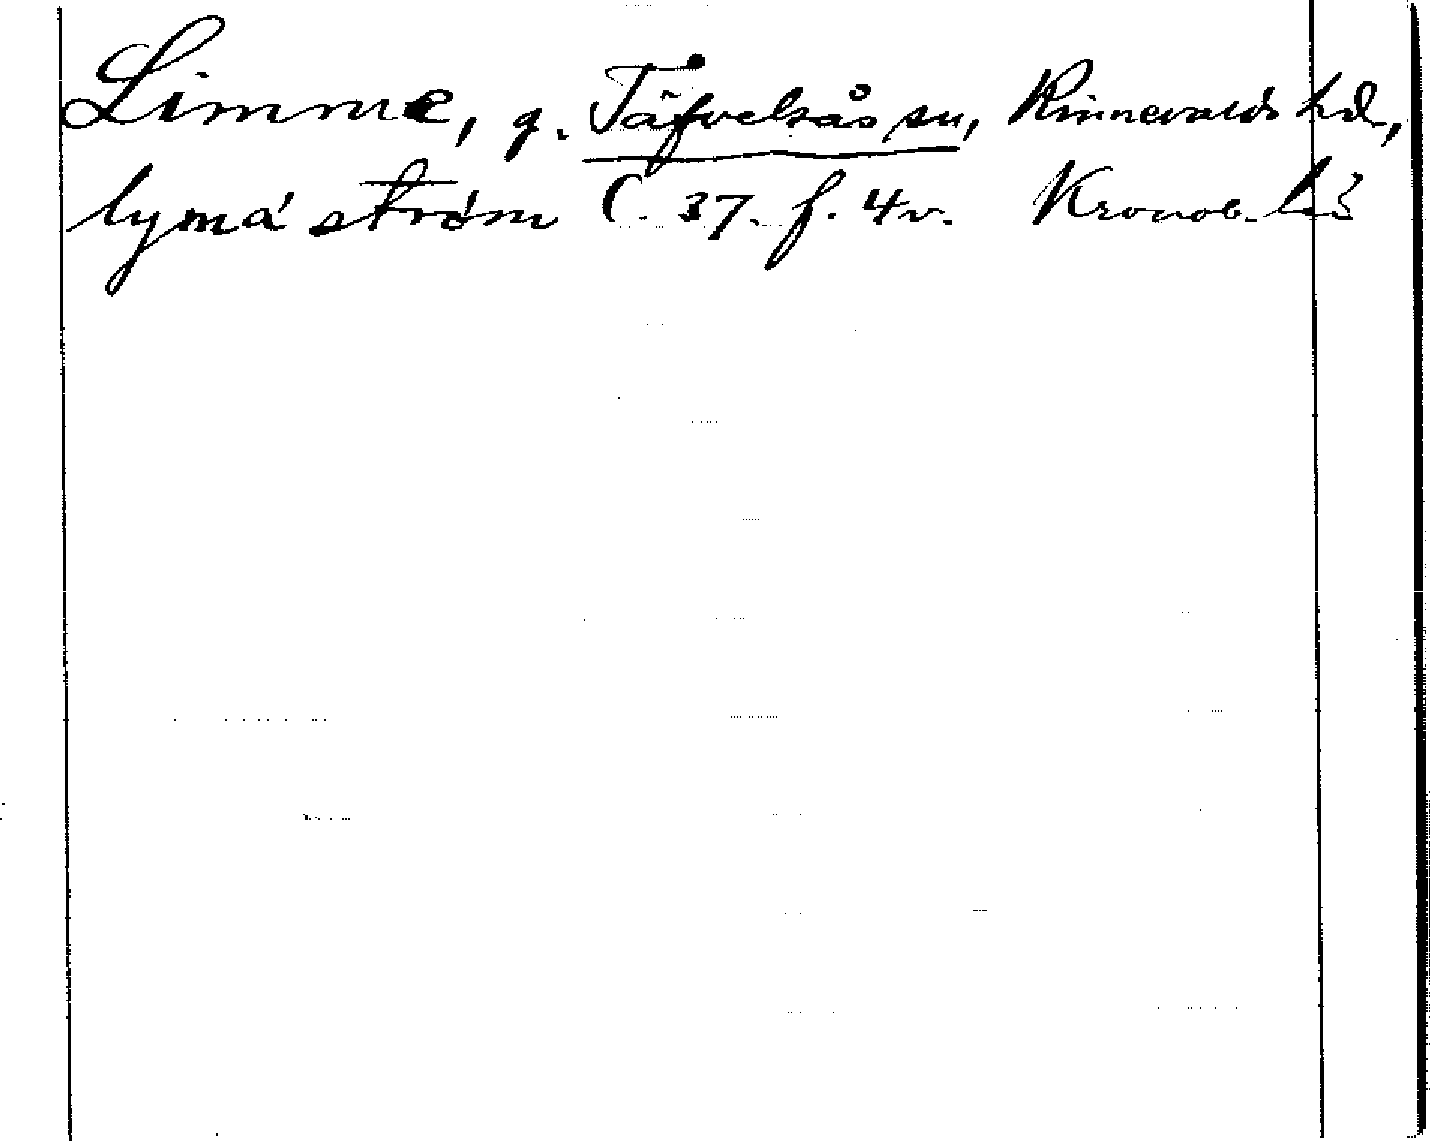 Limme, g. Täfvelsås sn, Kinnevalds hd,
lyma ström C. 37. f. 4v. Kronob. län